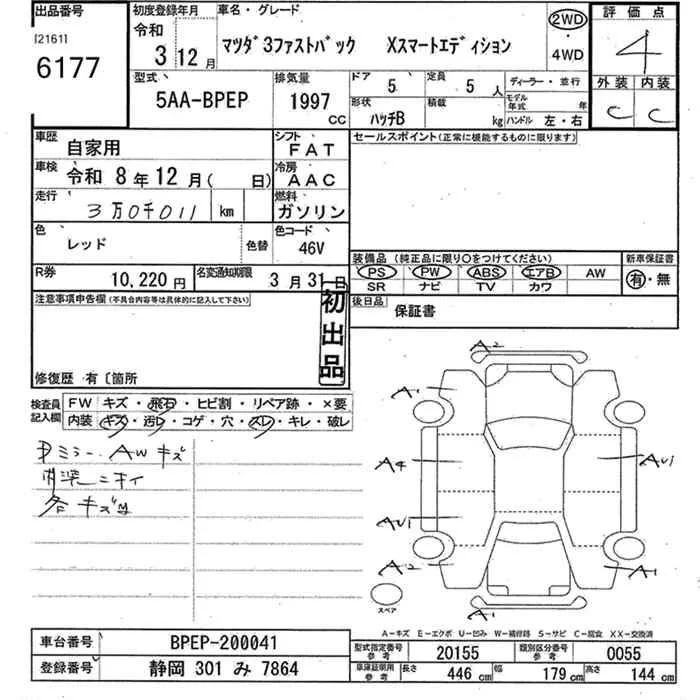 出品番号
[2161]
6177
初度登録年月
令和
3 12月
車名・グレード
マツダ3ファストバック Xスマートエディション
2WD
・
4WD
評価点
4
型式
5AA-BPEP
排気量
1997
cc
ドア
5
定員
5 人
形状
ハッチB
積載
kg
ディーラー・並行
モデル年式 年
ハンドル 左・右
外装
C
内装
C
車歴
自家用
シフト
FAT
車検
令和 8年12月( 日)
冷房
AAC
走行
3万0千011 km
燃料
ガソリン
色
レッド
色替
色コード
46V
R券
10,220円
名変通知期限
3月31日
セールスポイント(正常に機能するものに限ります)
装備品(純正品に限り〇をつけてください)
新車保証書
PS PW ABS エアB AW
SR ナビ TV カワ
有・無
後日品
保証書
注意事項申告欄(不具合内容等は具体的に記入して下さい)
初出品
修復歴 有〔箇所
検査員
記入欄
FW キズ・飛石・ヒビ割・リペア跡・×要
内装 キズ・汚レ・コゲ・穴・スレ・キレ・破レ
ミラー・AWキズ
内装ニオイ
各キズ凹
A2
A1
A4
AU1
AU1
A2
A1
A1
スペア
A-キズ E-エクボ U-凹み W-補修跡 S-サビ C-腐食 XX-交換済
車台番号
BPEP-200041
登録番号
静岡 301 み 7864
型式指定番号
参考
20155
類別区分番号
参考
0055
車庫証明用
参考
長さ
446 cm
幅
179 cm
高さ
144 cm